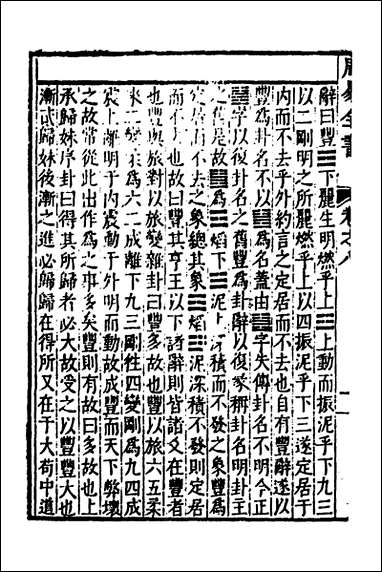 周易全書 卷之八
辭曰豐☲下麗生明燃乎上☳上動而振泥乎下九三
以二剛明之所麗燃乎上以四振泥乎下三遂定居于
内而不去乎外約言之定居而不去也自有豐辭遂以
豐為卦名不以䷶為名蓋由䷶字失傳卦名不明今正
䷶字以復卦名之舊豐為卦辭以復彖稱卦名明卦主
之舊是故䷶為☲焰下☳泥上積而不發之象豐為
定居不去之象總其象☲焰☳泥深積不發則定居
而不去也故曰豐其亨王以下諸辭則皆謂又在豐者
也豐與旅對以旅變雜卦曰豐多故也豐以旅六五柔
來二變為六二成離下九三剛往四變剛為九四成
震上離明于内震動于外明而動故成豐而天下弊壞
之故常從此出作為之事多矣豐則有故曰多故也上
承歸妹序卦曰得其所歸者必大故受之以豐豐大也
漸貳歸妹後漸之進必歸歸在得所又在于大苟中道